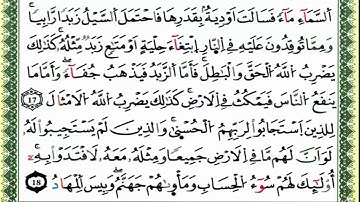 السَّمَآءِ مَآءً فَسَالَتْ أَوْدِيَةٌۢ بِقَدَرِهَا فَاحْتَمَلَ السَّيْلُ زَبَدًا رَّابِيًا
وَمِمَّا تُوقِدُونَ عَلَيْهِ فِي النَّارِ ابْتِغَآءَ حِلْيَةٍ اَوْ مَتَٰعٍ زَبَدٌ مِّثْلُهُۥ كَذَٰلِكَ
يَضْرِبُ اللَّهُ الْحَقَّ وَالْبَٰطِلَ فَأَمَّا الزَّبَدُ فَيَذْهَبُ جُفَآءً وَأَمَّا مَا
يَنفَعُ النَّاسَ فَيَمْكُثُ فِي الَارْضِ كَذَٰلِكَ يَضْرِبُ اللَّهُ الَامْثَالَ 17
لِلذِينَ اَسْتَجَابُوا لِرَبِّهِمُ الْحُسْنَىٰ وَالذِينَ لَمْ يَسْتَجِيبُوا لَهُۥ
لَوَ اَنَّ لَهُم مَّا فِي الَارْضِ جَمِيعًا وَمِثْلَهُۥ مَعَهُۥ لَافْتَدَوْا بِهِۦٓ
أُوْلَٰٓئِكَ لَهُمْ سُوٓءُ الْحِسَابِ وَمَأْوَىٰهُمْ جَهَنَّمُ وَبِيسَ الْمِهَادُ 18